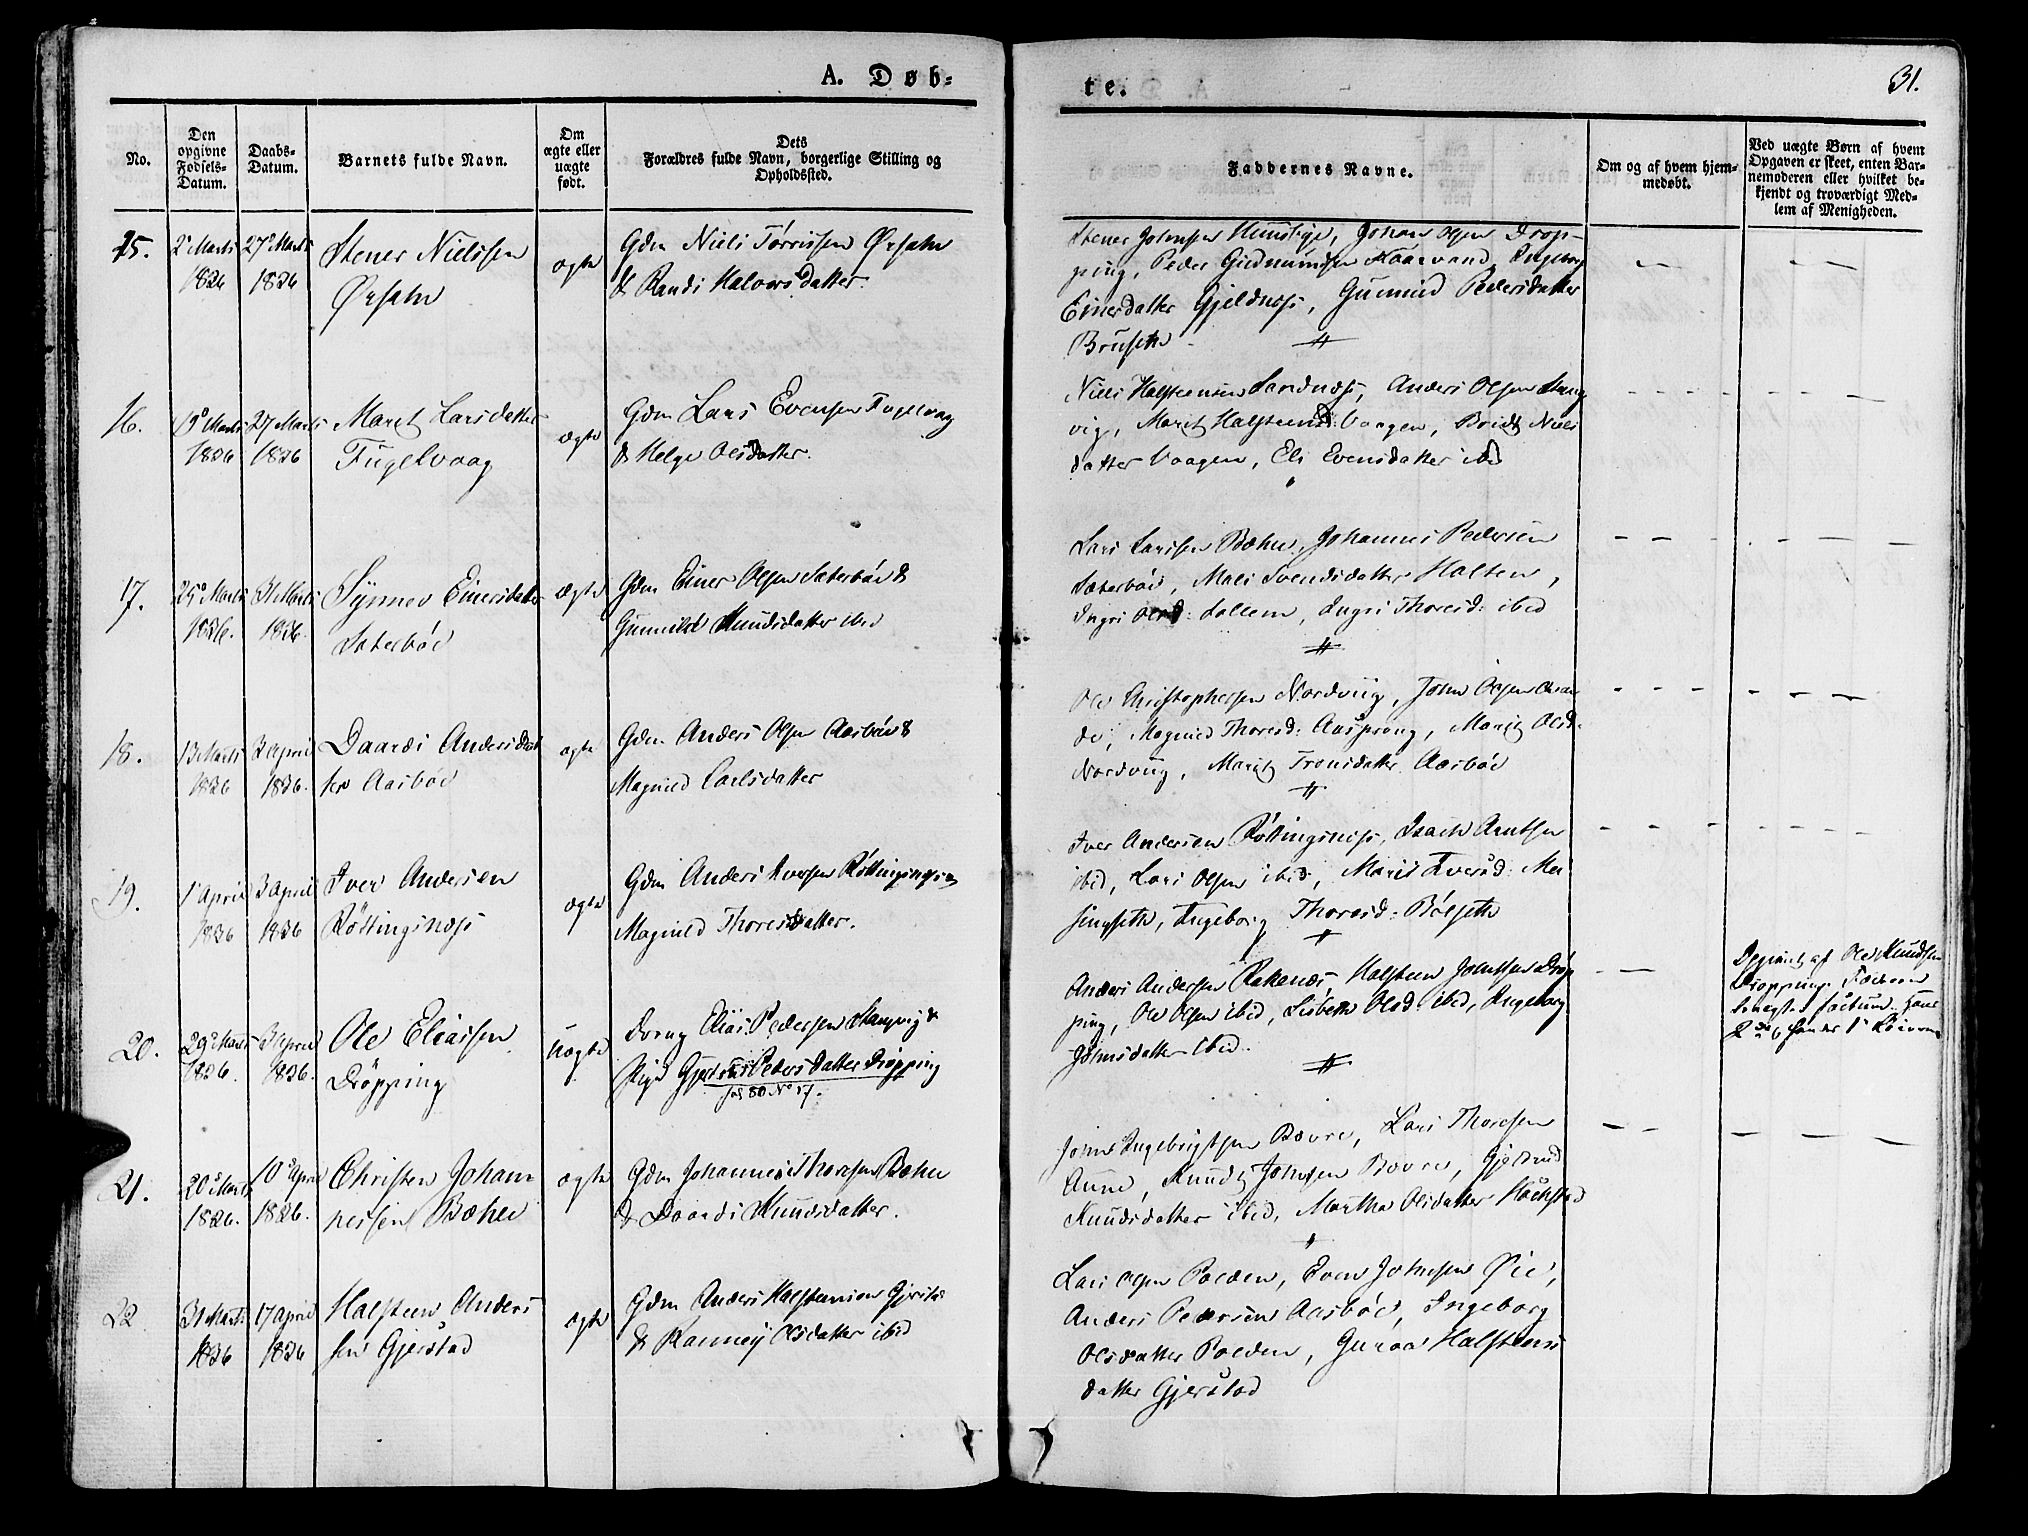 A. Døb-
te.
31.
No.
Den
opgivne
Fødsels-
Datum.
Daabs-
Datum.
Barnets fulde Navn.
Om
ægte eller
uægte
født.
Dets
Forældres fulde Navn, borgerlige Stilling og
Opholdssted.
Faddernes Navne.
Om og af hvem hjem-
medøbt.
Ved uægte Børn af hvem
Opgaven er skeet, enten Bar-
nemoderen eller hvilket be-
kjendt og troværdigt Med-
lem af Menigheden.
15.
2 Marts
1836
27 Marts
1836
Stener Nielssen
Ørsahn
ægte
Gdm Niels Tørrissen Ørsahn
& Randi Halvorsdatter.
Stener Johnsen Hunstige, Johan Olsen Drop-
ping, Peder Gudmundsen Haarvand, Ingeborg
Einersdatter Gjeldnæss, Gunnild Pedersdatter
Bruseth
16.
19 Marts
1836
27 Marts
1836
Marit Larsdatter
Fugelvaag
ægte
Gdm Lars Evensen Fugelvaag
& Helge Olsdatter.
Niels Halsteensen Sandnæss, Anders Olsen Stang
vig, Marit Halsteensd: Vaagen, Bridt Niels
datter Vaagen, Eli Evensdatter ibid
17.
25 Marts
1836.
31 Marts
1836.
Synnev Einersdatter
Saterbøe
ægte
Gdm Einer Olsen Saterbøe &
Gunnild Knudsdatter ibid
Lars Larssen Bæhn, Johannes Pedersen
Saterbøe, Mali Svendsdatter Holten,
Ingri Olsd: Sollem, Ingri Thoresd: ibid
18.
13 Marts
1836
3 April
1836.
Daardi Andersdat
ter Aasbøe
ægte
Gdm Anders Olsen Aasbøe &
Magnild Carlsdatter
Ole Christophersen Nordviig, John Olsen
de, Magnild Thoresd: Aasprong, Marit Olsd:
Nordviig, Marit Tronsdatter Aasbøe
19.
1 April
1836
3 April
1836
Iver Andersen
Røttingsnæss
ægte
Gdm Anders Iversen Røttingsnæss
Magnild Thoresdatter.
Iver Andersen Røttingsnæss, Isach Arntsen
ibid, Lars Olsen ibid, Marit Iversd: Mel
singseth, Ingeborg Thoresd: Bølseth
20.
29 Marts
1836.
3 April
1836.
Ole Eliassen
Drøpping
uægte
Dreng Elias Pedersen Stangvig &
Pige Gjertrud Pedersdatter Drøpping
fol 80 No 17.
Anders Andersen Rakenæs, Halsteen Johnssen Drøp
ping, Ole Olsen ibid, Lisbeth Olsd: ibid, Ingeborg
Johnsdatter ibid.
af Ole Knudsen
Drøpping. Faderen
factum. Hans
21.
20 Marts
1836.
10 April
1836.
Christen Johan
nessen Bæhn
ægte
Gdm Johannes Thoresen Bæhn
& Daardi Knudsdatter.
John Ingebrigtsen Bævre, Lars Thoresen
Aune, Knud Johnsen Bævre, Gjertrud
Knudsdatter ibid, Martha Olsdatter
22
31 Marts
1836
17 April
1836
Halsteen Anders
sen Gjerstad
ægte
Gdm Anders Halsteensen Gjerstad
& Ranney Olsdatter ibid
Lars Olsen Polden, Even Johnsen Øie,
Anders Pedersen Aasbøe, Ingeborg
Olsdatter Polden, Guroa Halsteens
datter Gjerstad